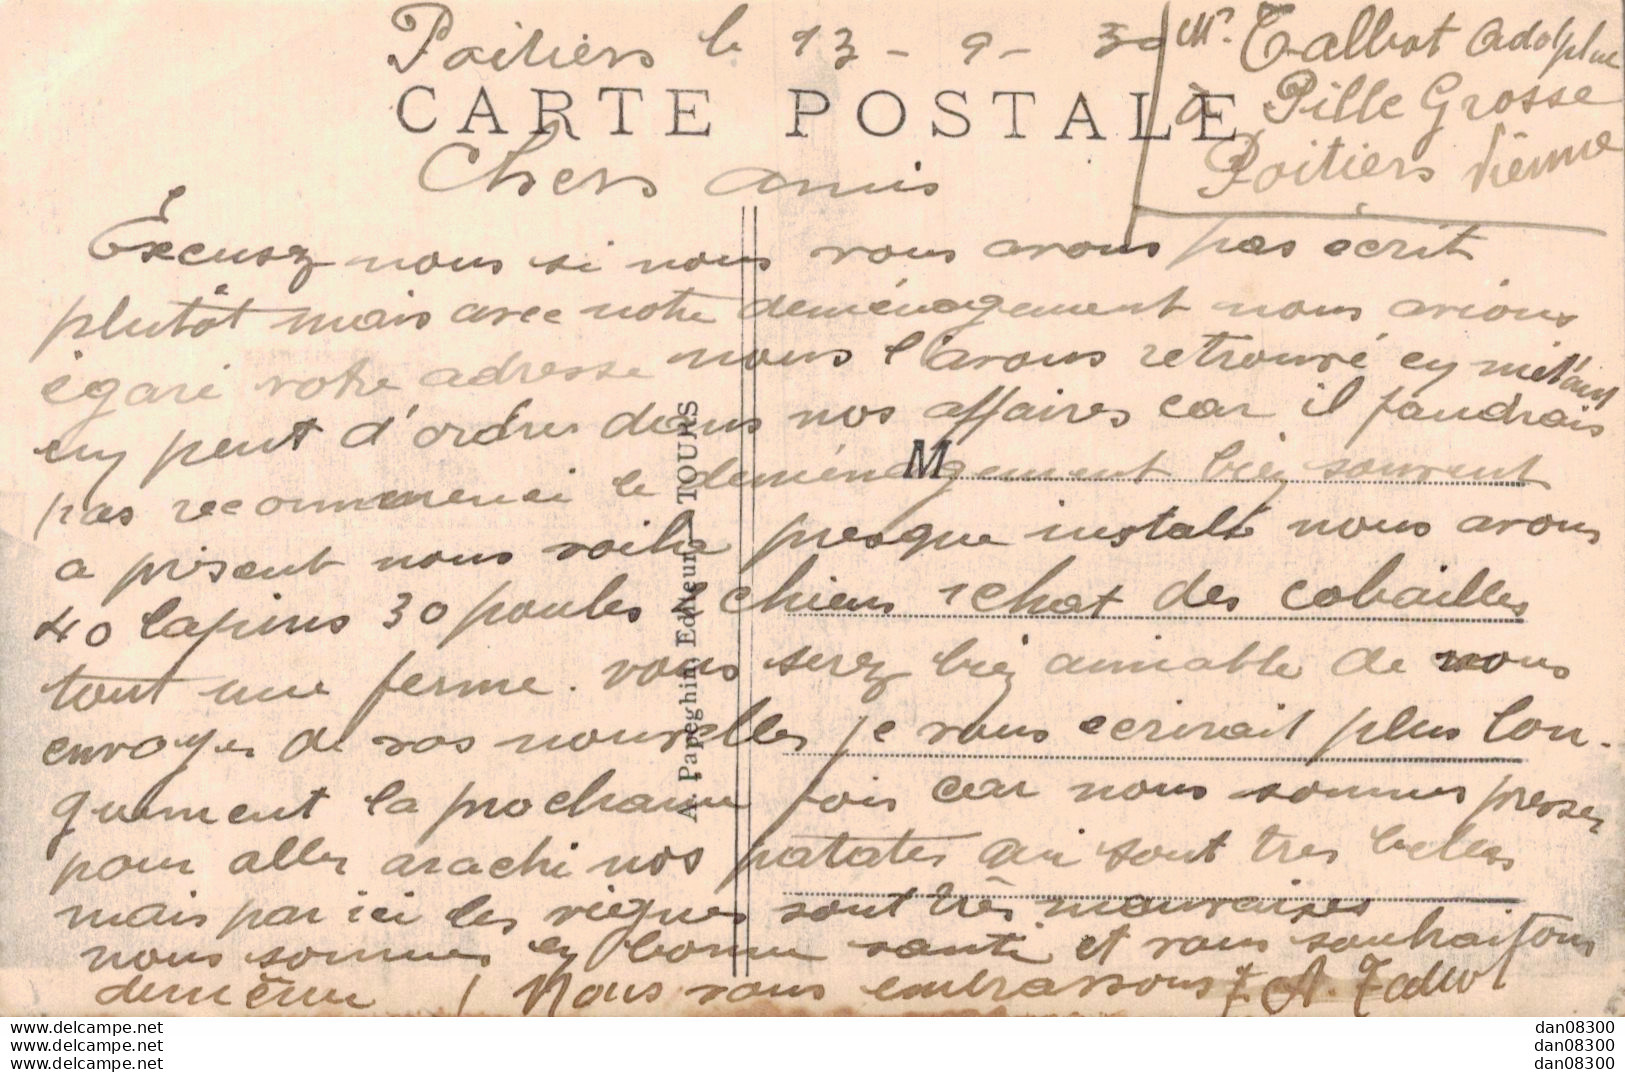 Poitiers le 13 - 9 - 30
Mr. Talbot Adolphe
à Pille Grosse
Poitiers Vienne
CARTE POSTALE
Chers amis
Excusez nous si nous vous avous pas écrit
plutôt mais avec notre deménagement nous avions
égaré votre adresse nous l'avous retrouvé en mettant
en peut d'ordres dans nos affaires car il faudrais
pas recommencei le deménagement bien souvent
a présent nous voila presque installé nous avons
40 lapins 30 poules 2 chiens 1 chat des cobailles
tout une ferme. vous serez bien aimiable de nous
envoyer de vos nouvelles je vous ecrirait plus lon-
guement la prochaine fois car nous sommes presser
pour aller arachi nos patates qui sont tres belles
mais par ici les vignes sont très mauvaises
nous sommes en bonne santé et vous souhaitons
de même ! Nous vous embrassons A. Talbot
M
A. Papeghin Editeur - TOURS
dan08300
dan08300
dan08300
dan08300
dan08300
dan08300